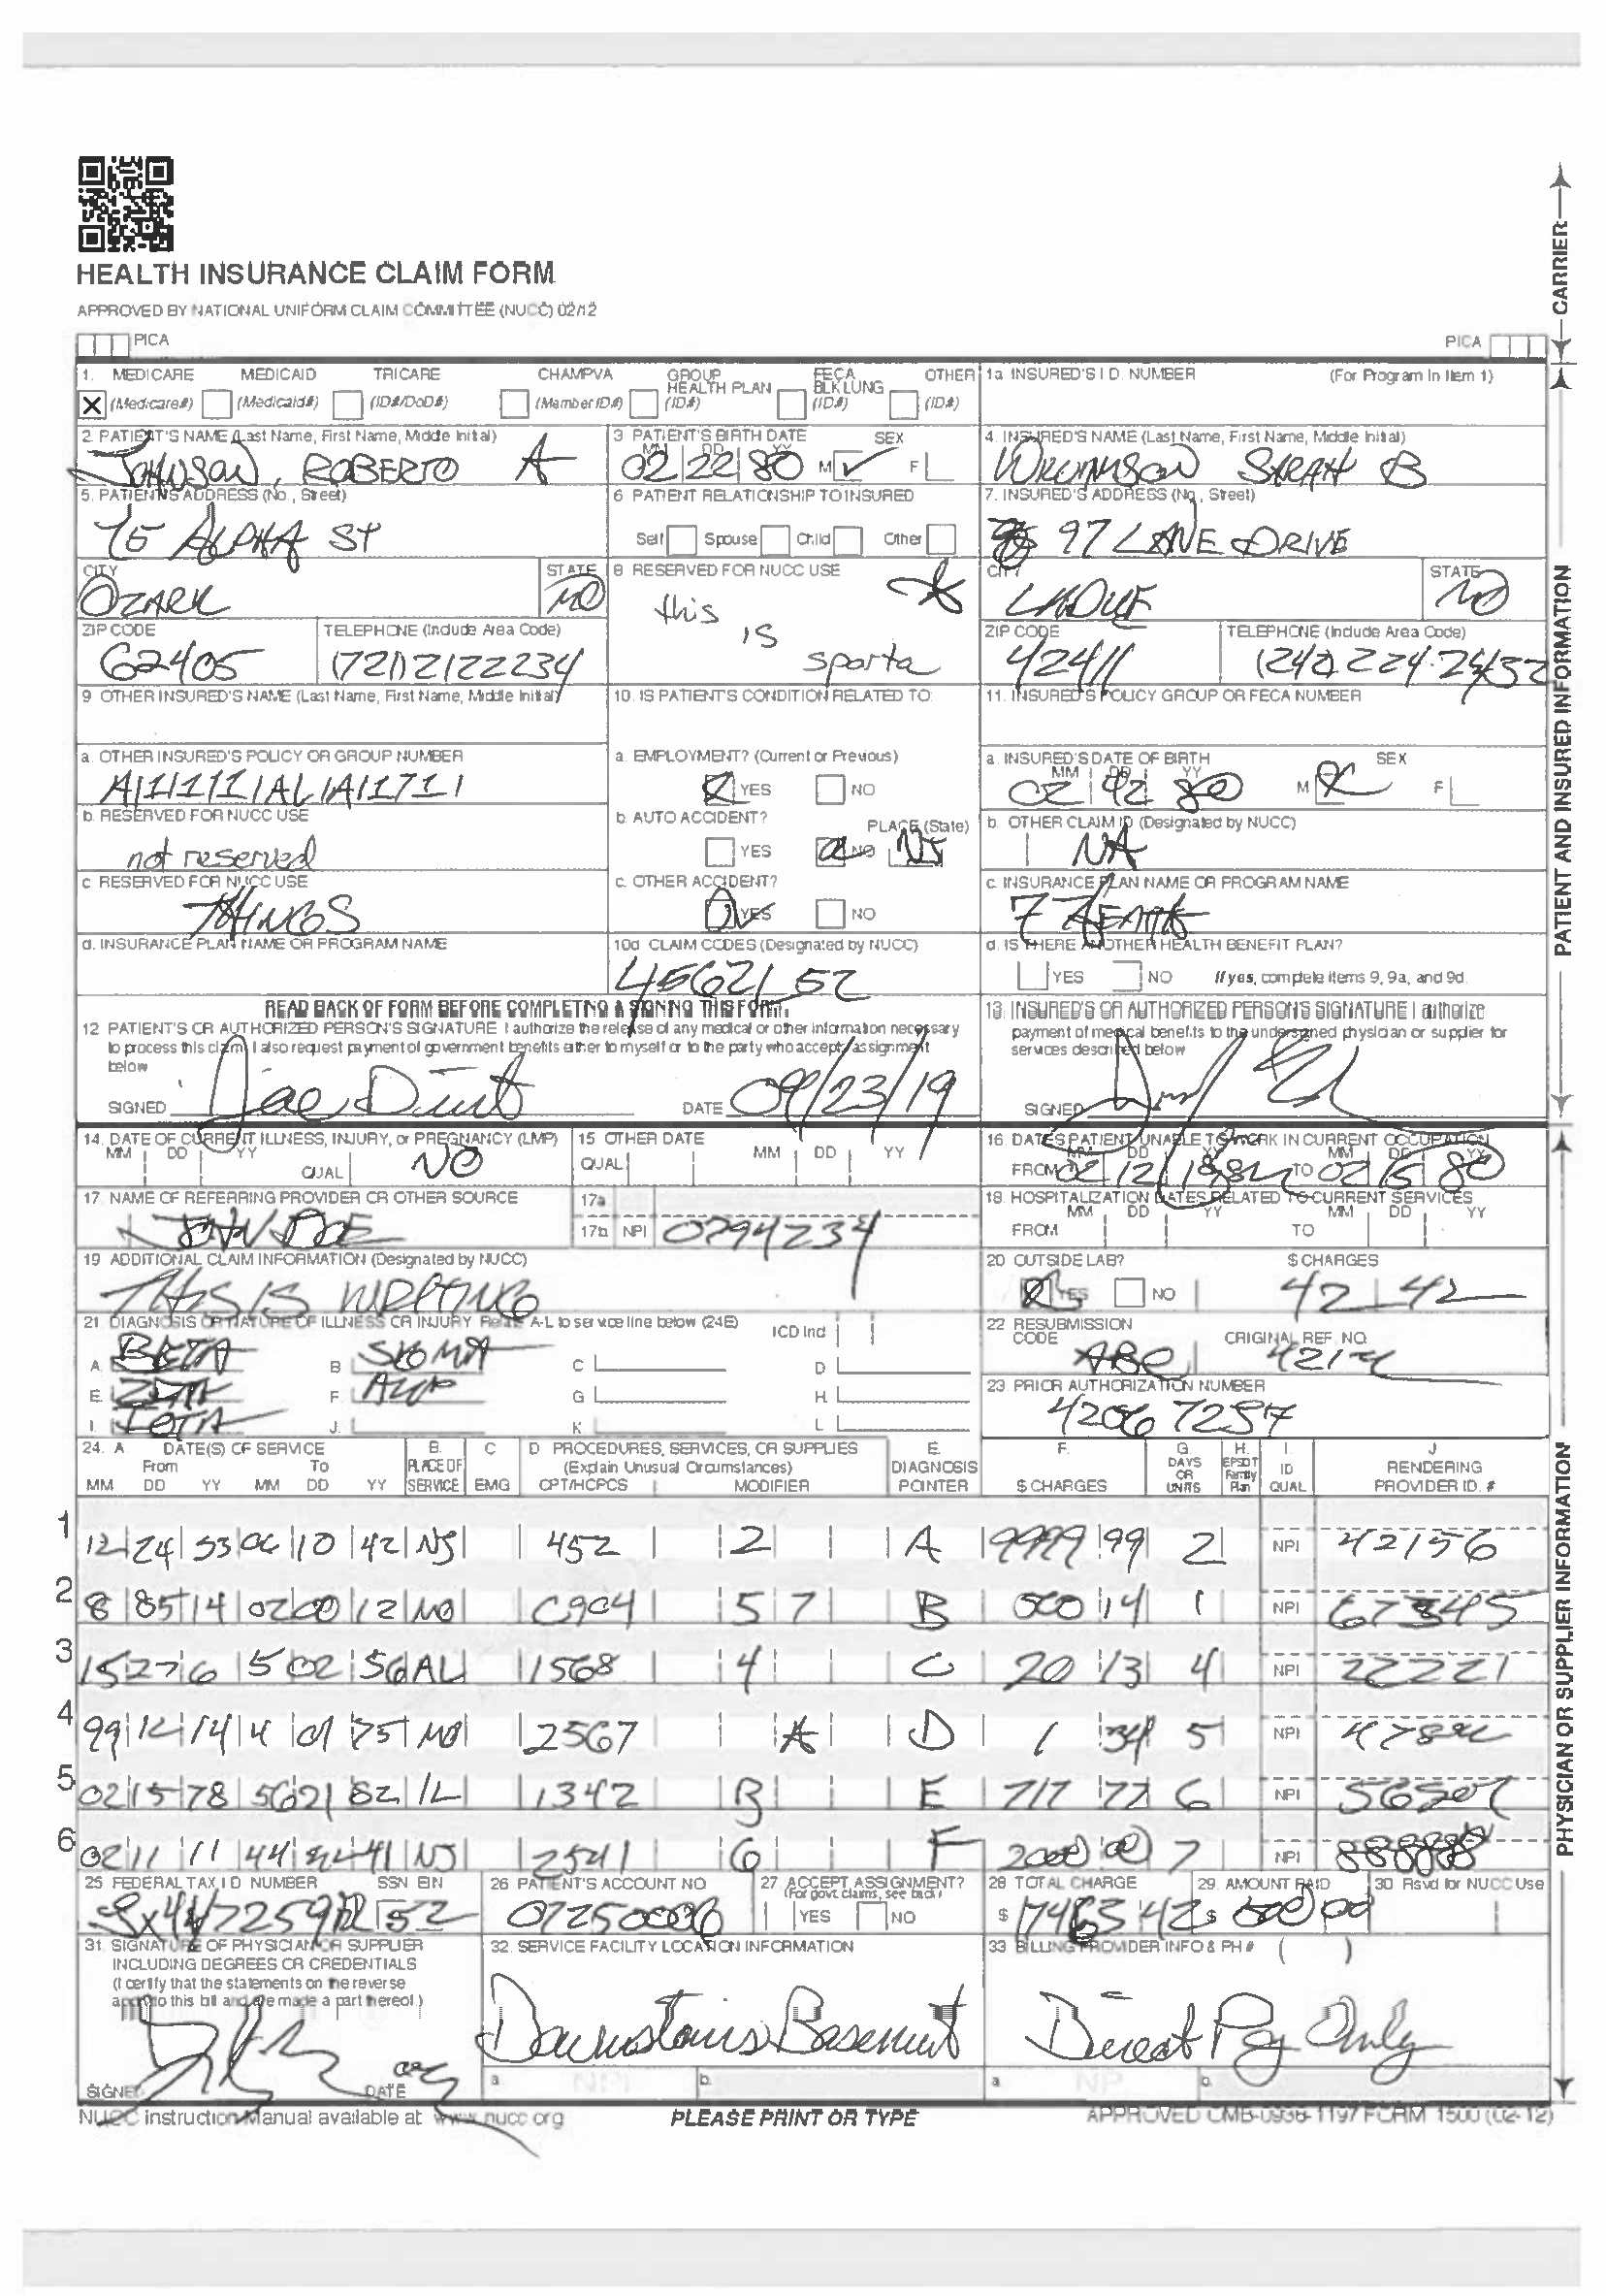 HEALTH INSURANCE CLAIM FORM
APPROVED BY NATIONAL UNIFORM CLAIM COMMITTEE (NUCC) 02/12
PICA PICA
CARRIER
1. MEDICARE MEDICAID TRICARE CHAMPVA GROUP HEALTH PLAN FECA BLK LUNG OTHER
X (Medicare#) (Medicaid#) (ID#/DoD#) (Member ID#) (ID#) (ID#) (ID#)
1a INSURED'S I.D. NUMBER (For Program in Item 1)
2. PATIENT'S NAME (Last Name, First Name, Middle Initial)
JOHNSON, ROBERTO A
3 PATIENT'S BIRTH DATE SEX
MM DD YY
02 22 80 M F
4. INSURED'S NAME (Last Name, First Name, Middle Initial)
SARAH B
5. PATIENT'S ADDRESS (No., Street)
75 ALPHA ST
6 PATIENT RELATIONSHIP TO INSURED
Self Spouse Child Other
7. INSURED'S ADDRESS (No., Street)
97 LANE DRIVE
CITY STATE
OZARK MO
8 RESERVED FOR NUCC USE
this
is
sparta
CITY STATE
LADUE MO
ZIP CODE TELEPHONE (Include Area Code)
62405 (721)2122234
ZIP CODE TELEPHONE (Include Area Code)
42411
9 OTHER INSURED'S NAME (Last Name, First Name, Middle Initial)
10. IS PATIENT'S CONDITION RELATED TO:
11. INSURED'S POLICY GROUP OR FECA NUMBER
a. OTHER INSURED'S POLICY OR GROUP NUMBER
a. EMPLOYMENT? (Current or Previous)
YES NO
a. INSURED'S DATE OF BIRTH SEX
MM DD YY
02 42 80 M F
b. RESERVED FOR NUCC USE
not reserved
b. AUTO ACCIDENT? PLACE (State)
YES NO NJ
b. OTHER CLAIM ID (Designated by NUCC)
NA
c RESERVED FOR NUCC USE
THINGS
c. OTHER ACCIDENT?
YES NO
c. INSURANCE PLAN NAME OR PROGRAM NAME
d. INSURANCE PLAN NAME OR PROGRAM NAME
10d CLAIM CODES (Designated by NUCC)
45621 52
d. IS THERE ANOTHER HEALTH BENEFIT PLAN?
YES NO If yes, complete items 9, 9a, and 9d.
PATIENT AND INSURED INFORMATION
READ BACK OF FORM BEFORE COMPLETING & SIGNING THIS FORM.
12 PATIENT'S OR AUTHORIZED PERSON'S SIGNATURE I authorize the release of any medical or other information necessary
to process this claim. I also request payment of government benefits either to myself or to the party who accepts assignment
below
SIGNED DATE 09/23/19
13. INSURED'S OR AUTHORIZED PERSON'S SIGNATURE I authorize
payment of medical benefits to the undersigned physician or supplier for
services described below
SIGNED
14. DATE OF CURRENT ILLNESS, INJURY, or PREGNANCY (LMP)
MM DD YY
QUAL NO
15 OTHER DATE MM DD YY
QUAL
16 DATES PATIENT UNABLE TO WORK IN CURRENT OCCUPATION
MM DD YY MM DD YY
FROM TO
17. NAME OF REFERRING PROVIDER OR OTHER SOURCE
DOE
17a
17b NPI 0794234
18. HOSPITALIZATION DATES RELATED TO CURRENT SERVICES
MM DD YY MM DD YY
FROM TO
19 ADDITIONAL CLAIM INFORMATION (Designated by NUCC)
THIS IS WRITING
20 OUTSIDE LAB? $ CHARGES
YES NO 42 42
21 DIAGNOSIS OR NATURE OF ILLNESS OR INJURY Relate A-L to service line below (24E) ICD Ind
A. BETA B SIGMA C D
E. ZETA F. G H.
I. IOTA J. K L
22 RESUBMISSION
CODE ORIGINAL REF. NO.
ABC
23. PRIOR AUTHORIZATION NUMBER
42067257
24. A. DATE(S) OF SERVICE B. C D PROCEDURES, SERVICES, OR SUPPLIES E. F. G. H. I. J
From To PLACE OF (Explain Unusual Circumstances) DIAGNOSIS DAYS OR UNITS EPSDT Family Plan ID RENDERING
MM DD YY MM DD YY SERVICE EMG CPT/HCPCS MODIFIER POINTER $ CHARGES QUAL PROVIDER ID. #
1 12 24 53 06 10 42 NJ 452 2 A 9999 99 2 NPI 42156
2 8 85 14 02 00 12 MO C904 5 7 B 500 14 1 NPI 67345
3 15 27 6 5 02 56 AL 1568 4 C 20 13 4 NPI 22221
4 99 12 14 4 01 75 MO 2567 A D 1 34 5 NPI
5 02 15 78 56 21 82 IL 1342 B E 717 77 6 NPI
6 02 11 11 44 41 NJ 2541 6 F 2000 00 7 NPI 88888
25 FEDERAL TAX I.D. NUMBER SSN EIN
26 PATIENT'S ACCOUNT NO
27 ACCEPT ASSIGNMENT?
(For govt. claims, see back)
YES NO
28 TOTAL CHARGE
$ 42
29. AMOUNT PAID
$ 500 00
30 Rsvd for NUCC Use
31. SIGNATURE OF PHYSICIAN OR SUPPLIER
INCLUDING DEGREES OR CREDENTIALS
(I certify that the statements on the reverse
apply to this bill and are made a part thereof.)
SIGNED DATE
32. SERVICE FACILITY LOCATION INFORMATION
Downstairs Basement
a. NPI b.
33 BILLING PROVIDER INFO & PH # ( )
Direct Pay Only
a. NPI b.
PHYSICIAN OR SUPPLIER INFORMATION
NUCC Instruction Manual available at www.nucc.org PLEASE PRINT OR TYPE APPROVED OMB-0938-1197 FORM 1500 (02-12)